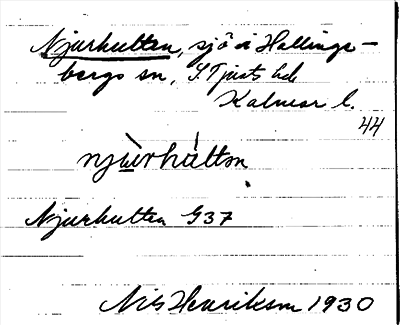 Njurhulten, sjö i Hallings-
bergs sn, S Tjusts hd
Kalmar l.
44
njùrhúltɔn
Njurhulten G37
Nils Henrikson 1930